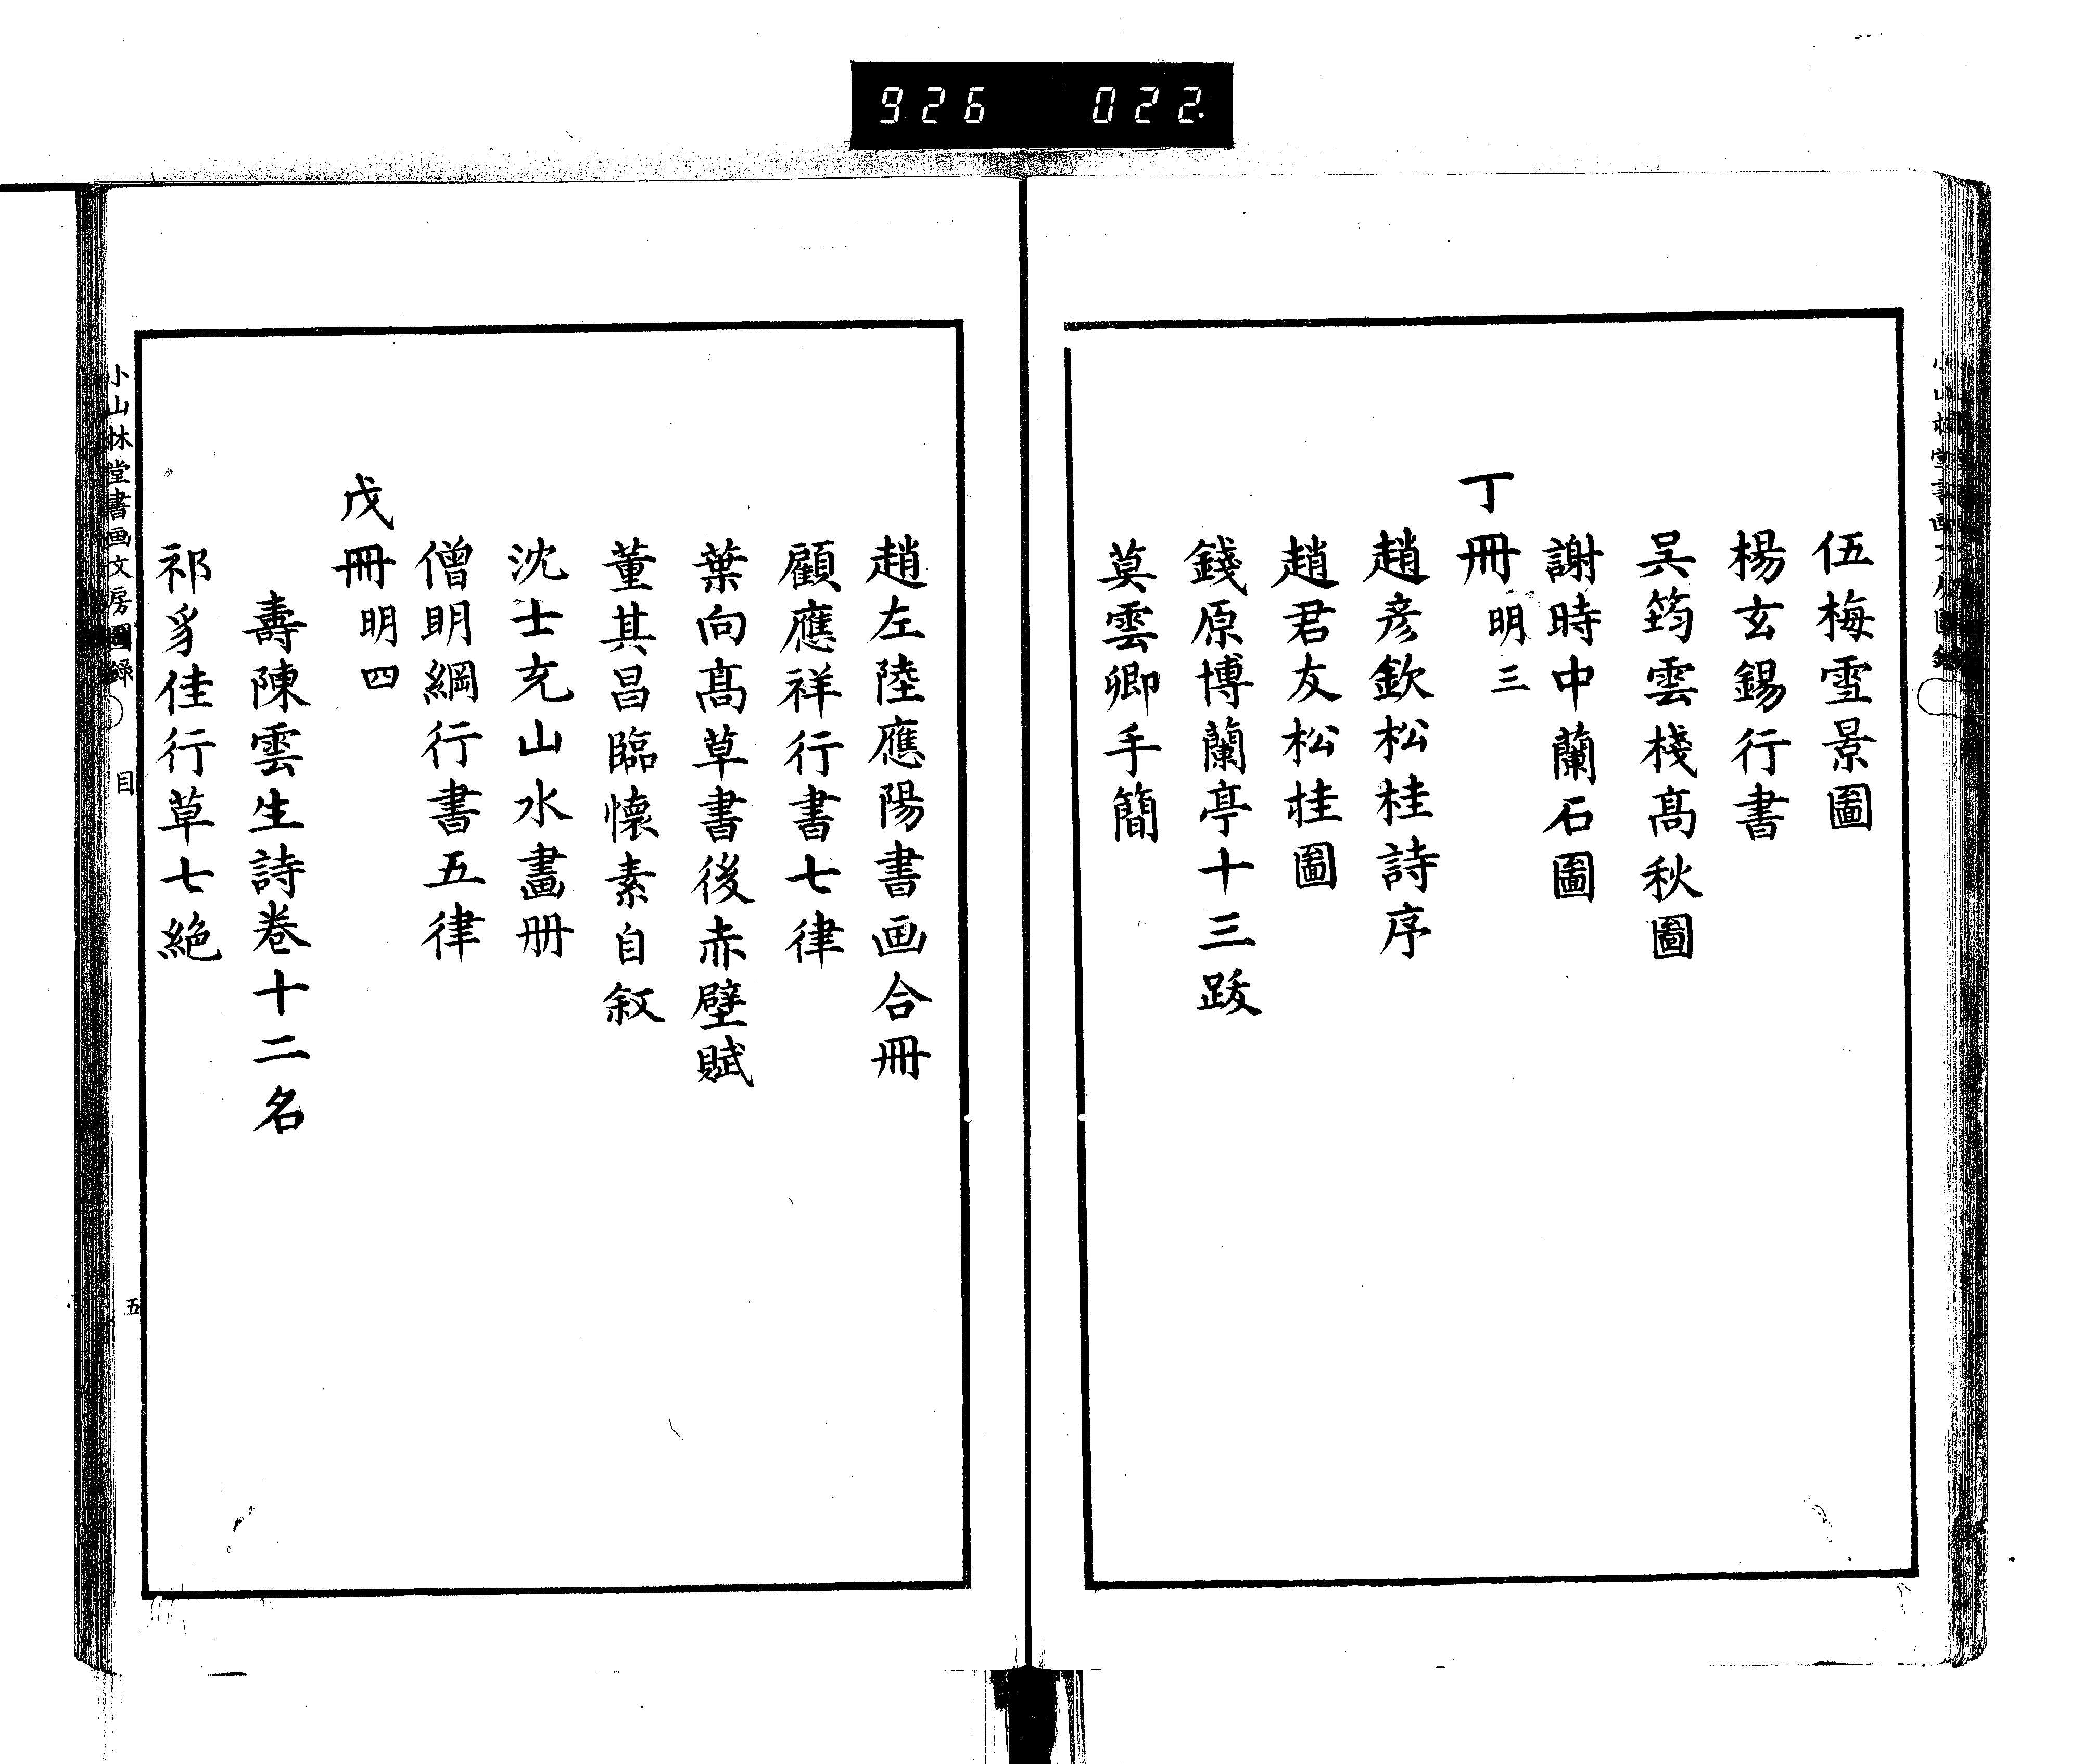 926 022
伍梅雪景圖
楊玄錫行書
吴筠雲棧髙秋圖
謝時中蘭石圖
丁冊 明三
趙彦欽松桂詩序
趙君友松桂圖
錢原博蘭亭十三跋
莫雲卿手簡
趙左陸應陽書画合冊
顧應祥行書七律
葉向髙草書後赤壁賦
董其昌臨懷素自叙
沈士充山水畫册
僧明綱行書五律
戊冊 明四
壽陳雲生詩巻十二名
祁豸佳行草七絶
小山林堂書画文房圖錄
目
五